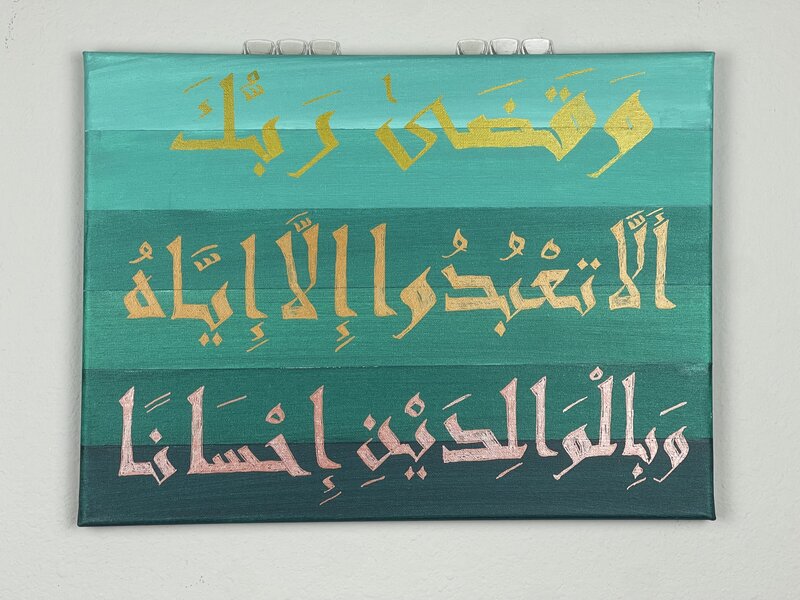 وَقَضَىٰ رَبُّكَ
أَلَّا تَعْبُدُوا إِلَّا إِيَّاهُ
وَبِالْوَالِدَيْنِ إِحْسَانًا